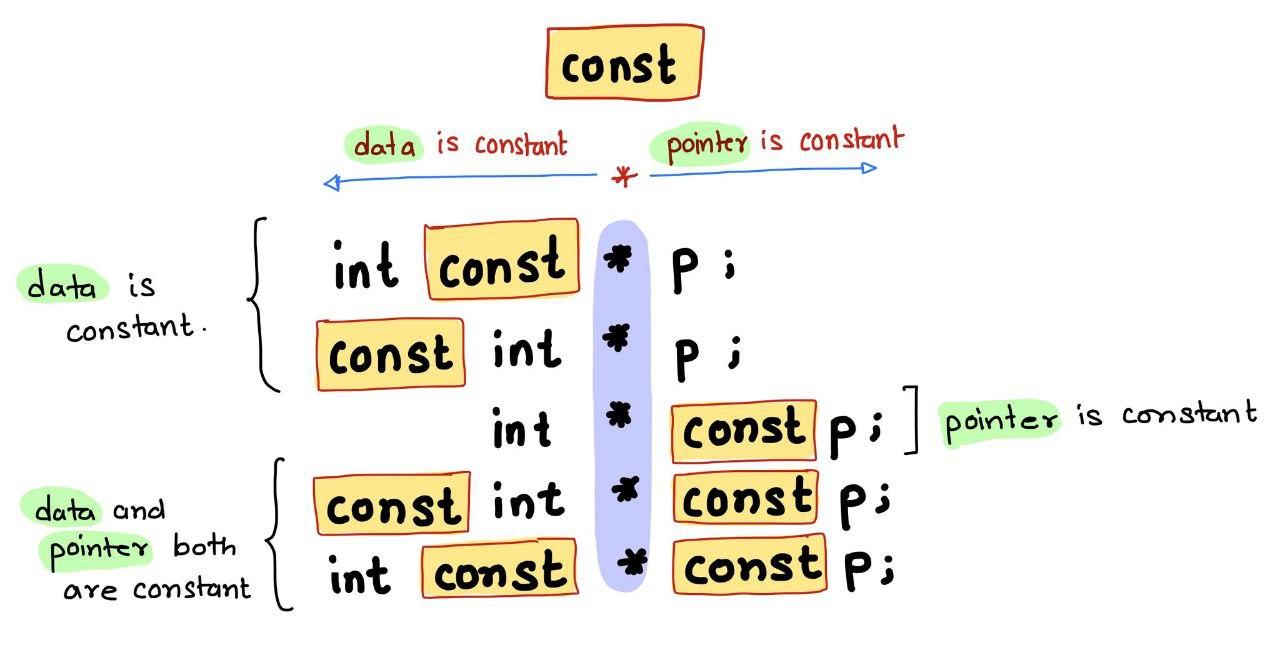 const
data is constant * pointer is constant
data is
constant.
int const * p ;
const int * p ;
int * const p ;
pointer is constant
data and
pointer both
are constant
const int * const p ;
int const * const p ;